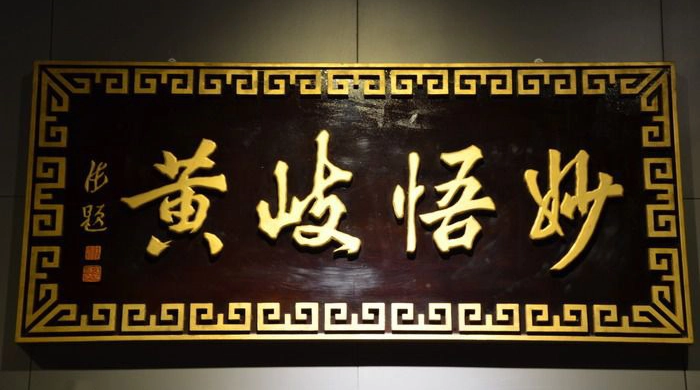 妙悟岐黄
题